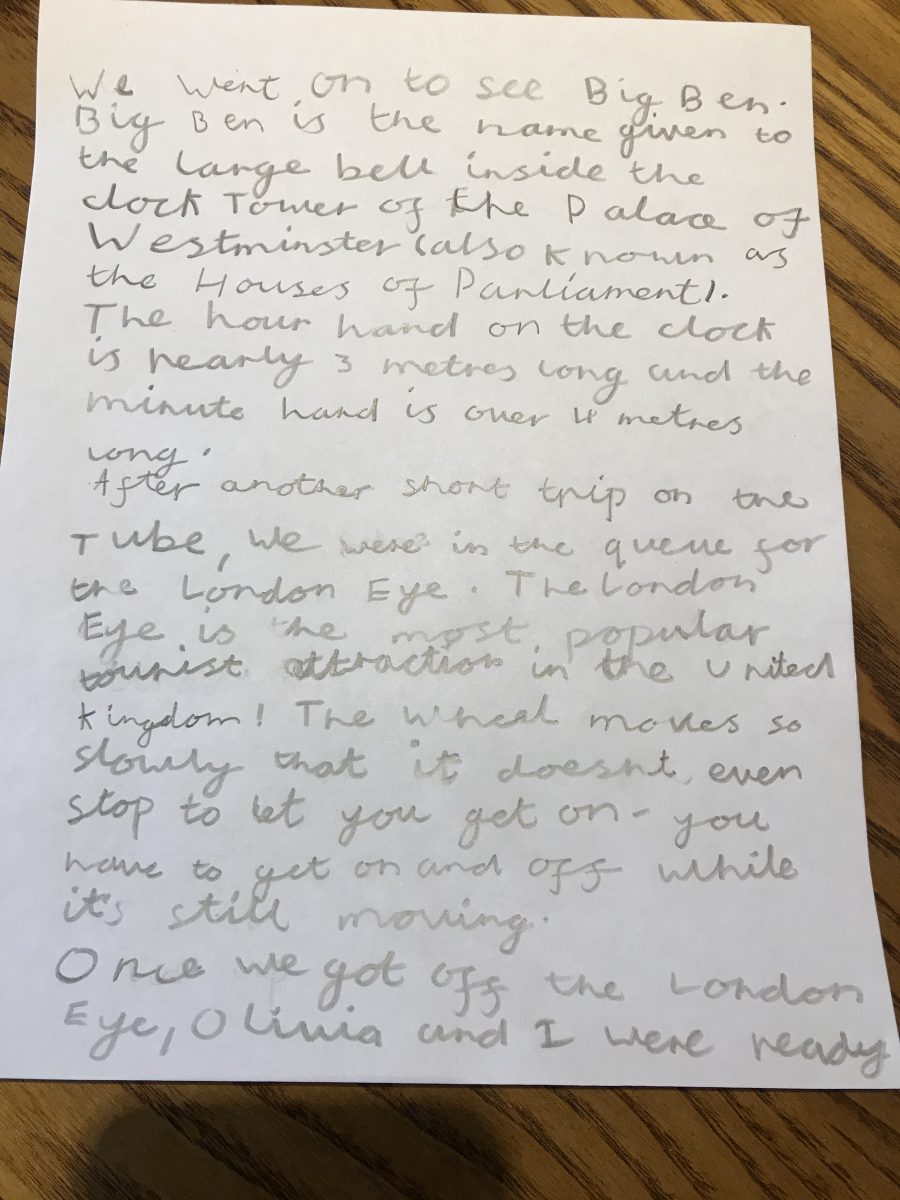 We went on to see Big Ben.
Big Ben is the name given to
the large bell inside the
clock Tower of the Palace of
Westminster (also known as
the Houses of Parliament).
The hour hand on the clock
is nearly 3 metres long and the
minute hand is over 4 metres
long.
After another short trip on the
Tube, we were in the queue for
the London Eye. The London
Eye is the most popular
tourist attraction in the United
kingdom! The wheel moves so
slowly that it doesn't even
stop to let you get on- you
have to get on and off while
it's still moving.
Once we got off the London
Eye, Olivia and I were ready